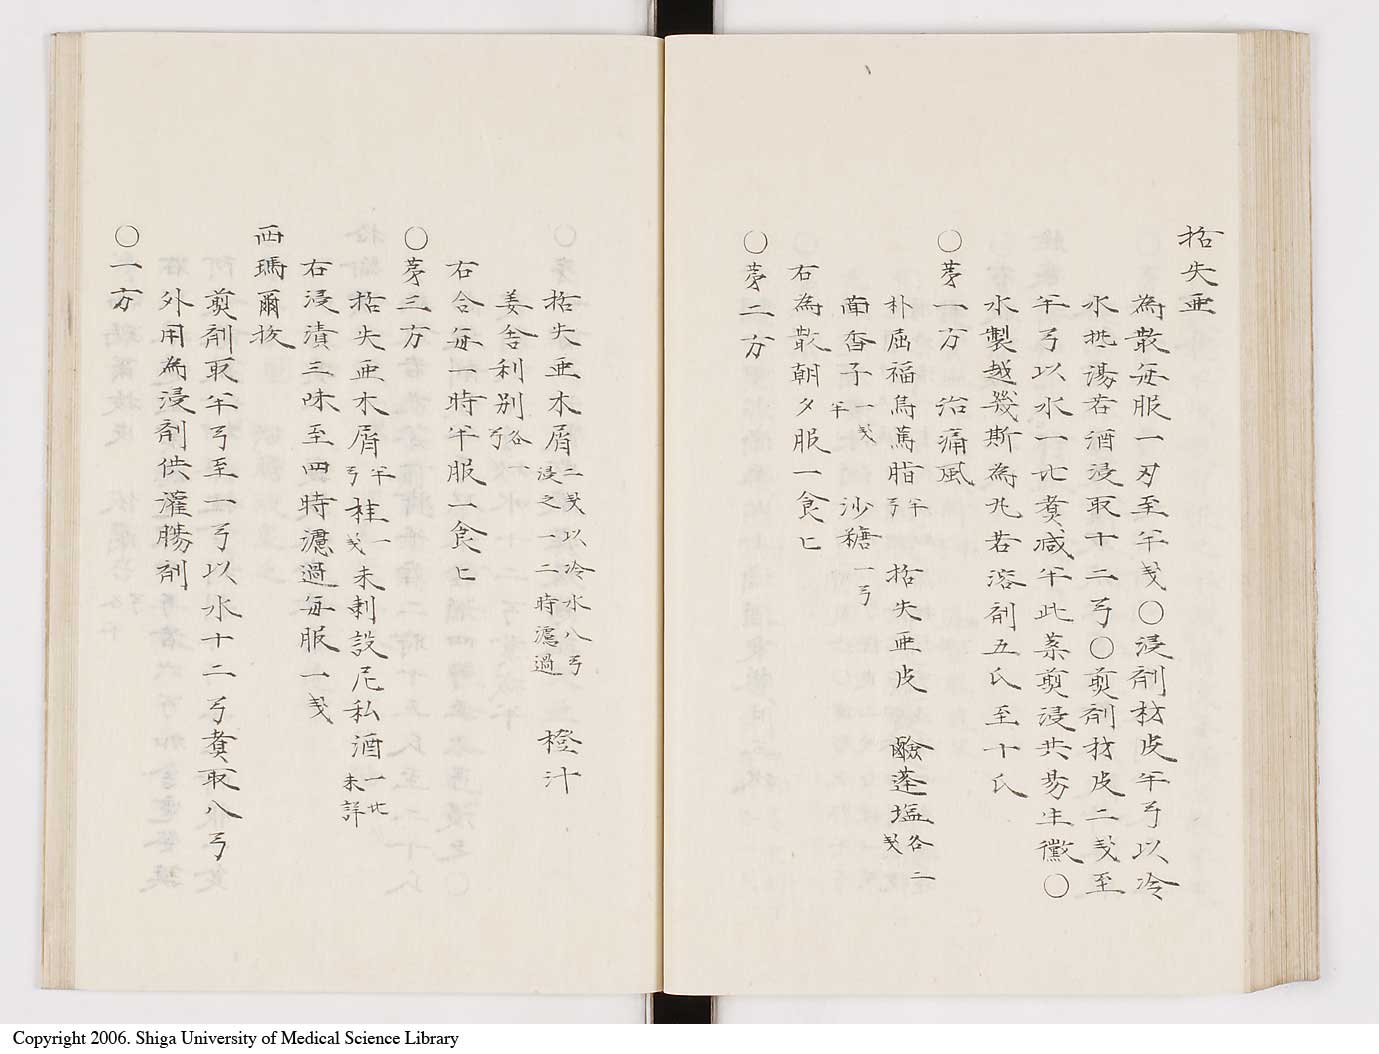 括失亜
為散毎服一刄至半戔〇浸剤材皮半弓以冷
水拠湯若酒浸取十二弓〇煎剤材皮二戔至
半弓以水一比煮减半此薬煎浸共昜生黴〇
水製越幾斯為丸若溶剤五氏至十氏
〇苐一方 治痛風
朴屈福烏篤脂半弓 括失亜皮 鹸蓬塩各二戔
茴香子一戔半 沙糖一弓
右為散朝夕服一食匕
〇苐二方
括失亜木屑二戔以冷水八弓浸之一二時濾過 橙汁
姜舎利別各一弓
右合毎一時半服一食匕
〇苐三方
括失亜木屑半弓 桂一戔 未刺設尼私酒一比未詳
右浸漬三味至四時濾過毎服一戔
西瑪爾抜
煎剤取半弓至一弓以水十二弓煮取八弓
外用為浸剤供灌腸剤
〇一方
Copyright 2006. Shiga University of Medical Science Library